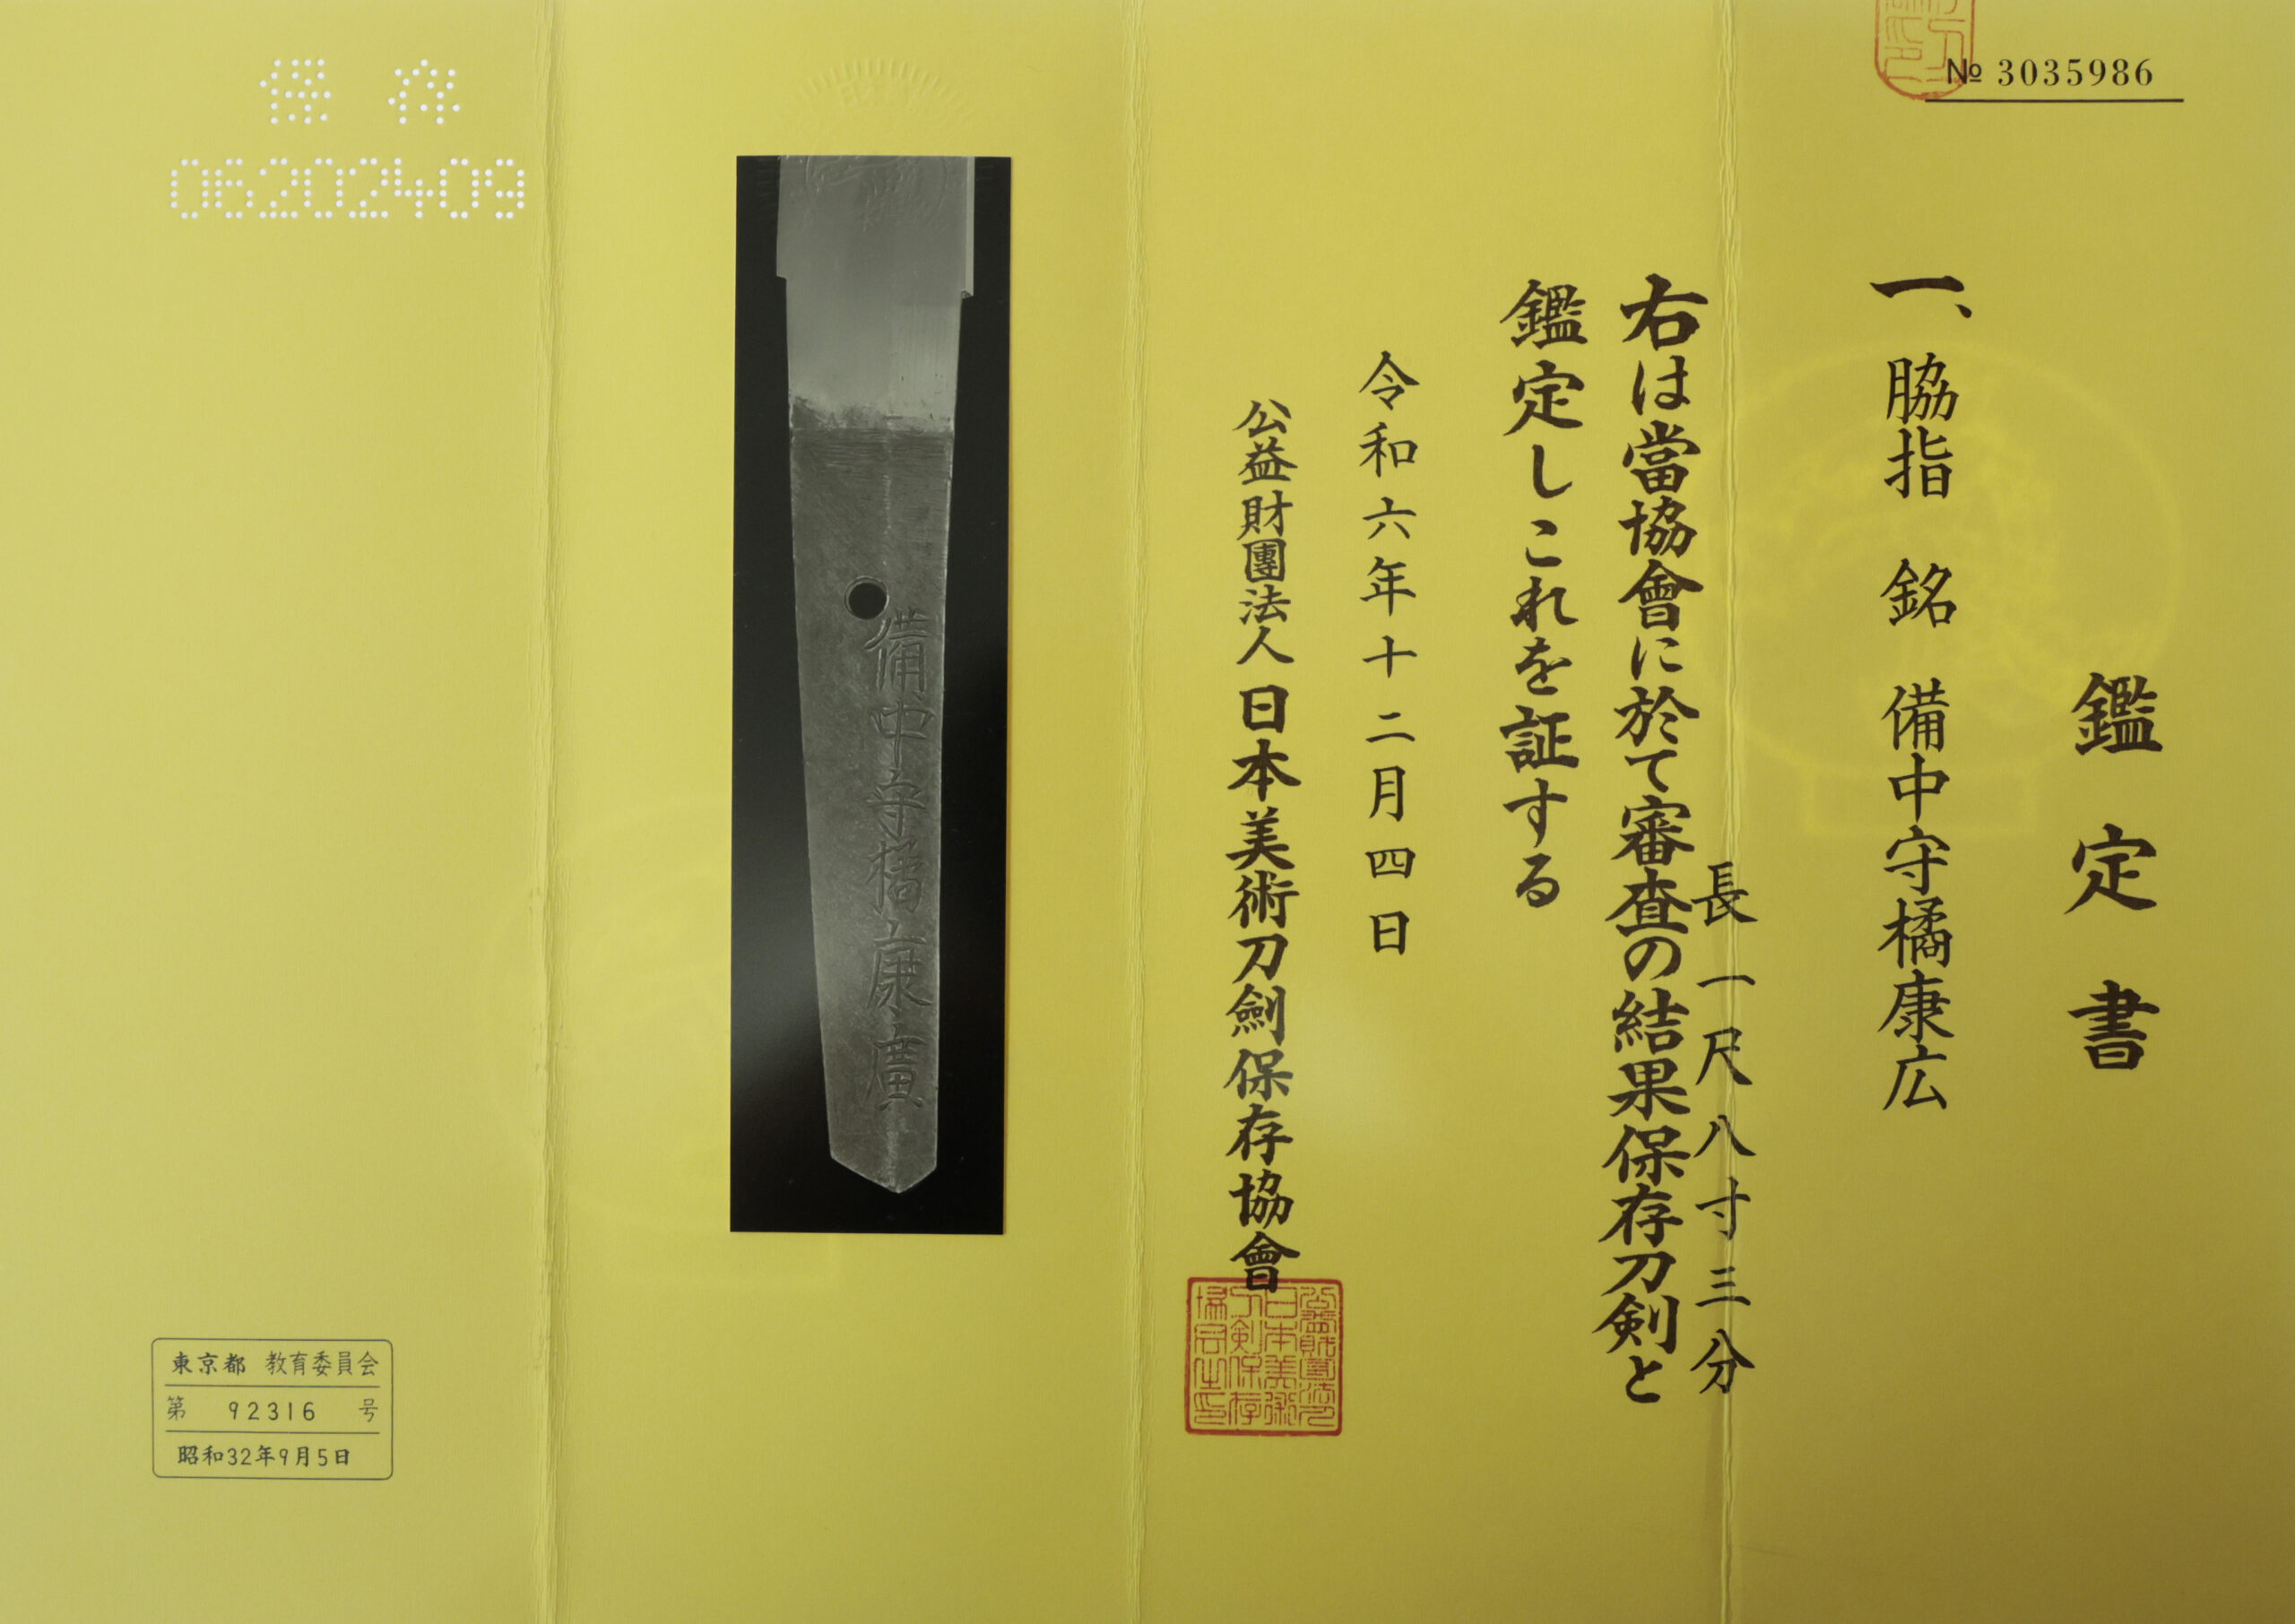 № 3035986
鑑定書
一、脇指 銘 備中守橘康広
長一尺八寸三分
右は當協會に於て審査の結果保存刀剣と
鑑定しこれを証する
令和六年十二月四日
公益財團法人日本美術刀劍保存協會
備中守橘康廣
保存
06202409
東京都 教育委員会
第 92316 号
昭和32年9月5日